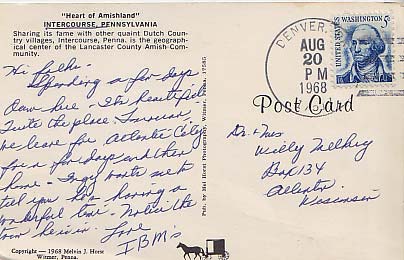 "Heart of Amishland"
INTERCOURSE, PENNSYLVANIA
Sharing its fame with other quaint Dutch Coun-
try villages, Intercourse, Penna. is the geograph-
ical center of the Lancaster County Amish Com-
munity.
Hi folks -
Spending a few days
down here - It's beautiful.
Quite the place. Tomorrow
we leave for Atlantic City
for a few days and then
home - wants me to
tell you he's having a
wonderful time. Notice the
town he's in. Love
IBM's
Copyright - 1968 Melvin J. Horst
Witmer, Penna.
Pub. by Mel Horst Photography, Witmer, Penna. 17585
DENVER, PA.
AUG
20
PM
1968
UNITED STATES
WASHINGTON 5c
Post Card
Dr. & Mrs
Willy
Box 134
Allenton
Wisconsin